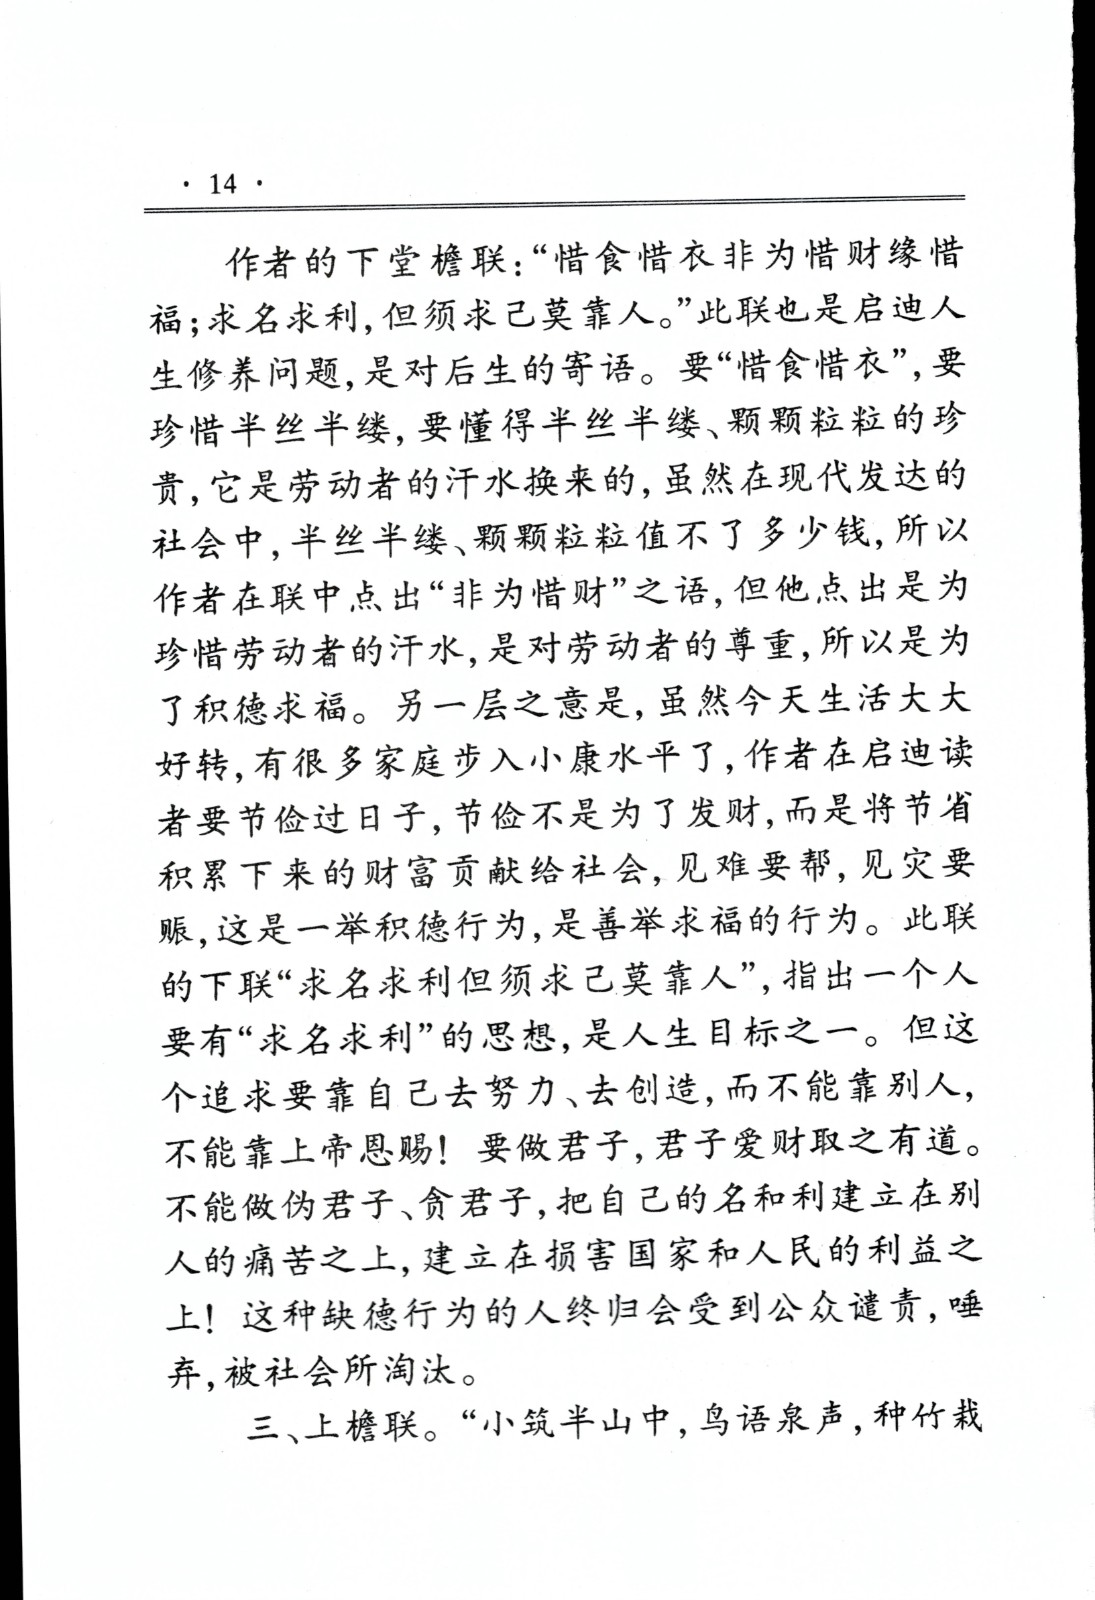 · 14 ·
作者的下堂檐联：“惜食惜衣非为惜财缘惜
福；求名求利，但须求己莫靠人。”此联也是启迪人
生修养问题，是对后生的寄语。要“惜食惜衣”，要
珍惜半丝半缕，要懂得半丝半缕、颗颗粒粒的珍
贵，它是劳动者的汗水换来的，虽然在现代发达的
社会中，半丝半缕、颗颗粒粒值不了多少钱，所以
作者在联中点出“非为惜财”之语，但他点出是为
珍惜劳动者的汗水，是对劳动者的尊重，所以是为
了积德求福。另一层之意是，虽然今天生活大大
好转，有很多家庭步入小康水平了，作者在启迪读
者要节俭过日子，节俭不是为了发财，而是将节省
积累下来的财富贡献给社会，见难要帮，见灾要
赈，这是一举积德行为，是善举求福的行为。此联
的下联“求名求利但须求己莫靠人”，指出一个人
要有“求名求利”的思想，是人生目标之一。但这
个追求要靠自己去努力、去创造，而不能靠别人，
不能靠上帝恩赐！要做君子，君子爱财取之有道。
不能做伪君子、贪君子，把自己的名和利建立在别
人的痛苦之上，建立在损害国家和人民的利益之
上！这种缺德行为的人终归会受到公众谴责，唾
弃，被社会所淘汰。
三、上檐联。“小筑半山中，鸟语泉声，种竹栽